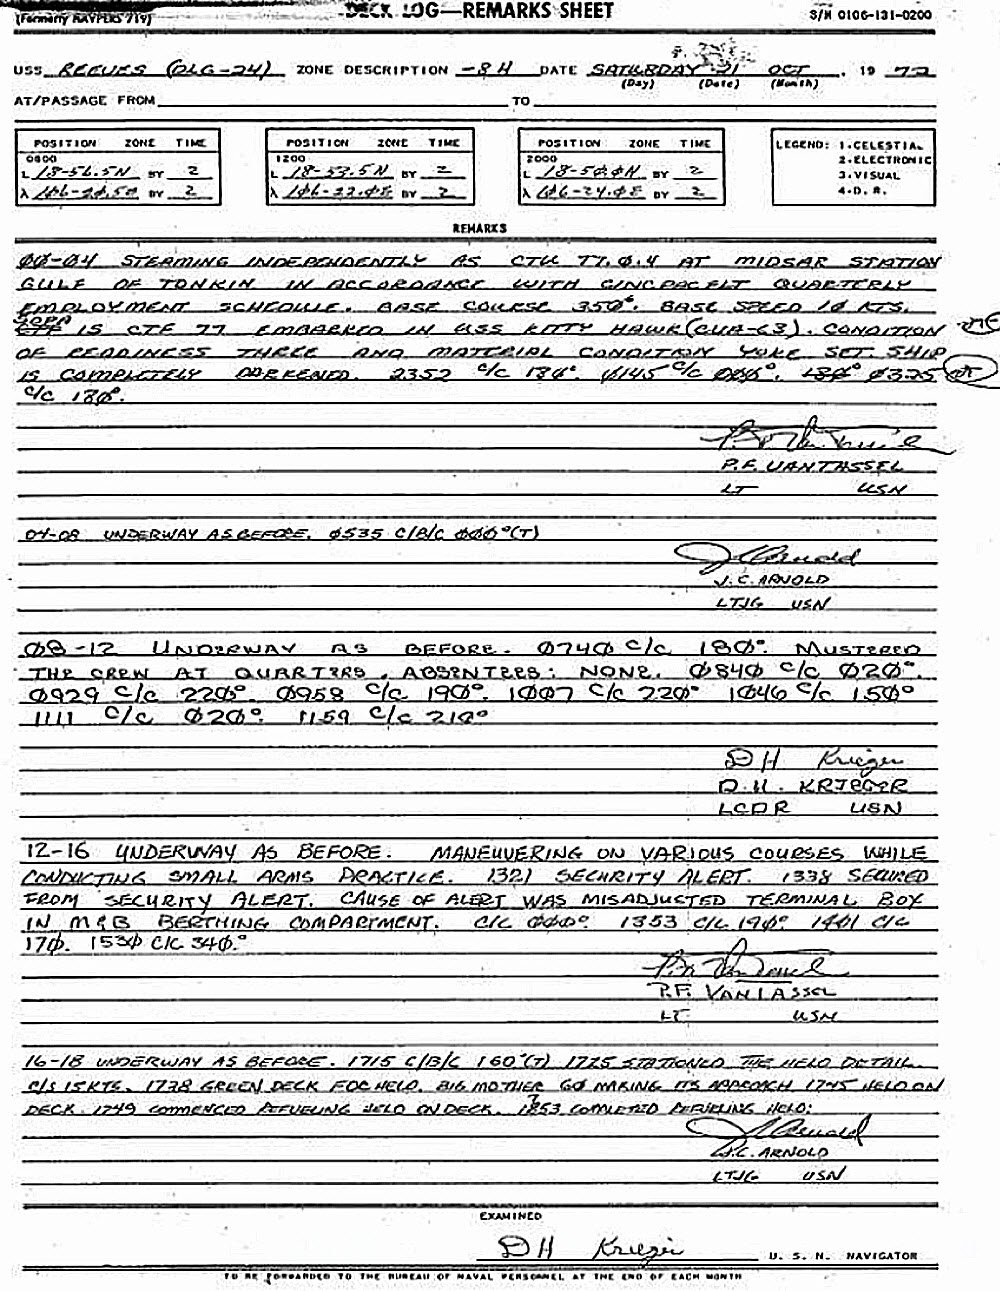 (Formerly NAVPERS 719)
DECK LOG—REMARKS SHEET
S/N 0106-131-0200
USS REEVES (DLG-24) ZONE DESCRIPTION -8H DATE SATURDAY 21 OCT, 19 72
(Day) (Date) (Month)
AT/PASSAGE FROM TO
POSITION ZONE TIME POSITION ZONE TIME POSITION ZONE TIME LEGEND: 1-CELESTIAL
0800 1200 2000 2-ELECTRONIC
L 18-56.5N BY 2 L 18-53.5N BY 2 L 18-50.0N BY 2 3-VISUAL
λ BY 2 λ 106-22.0E BY 2 λ 106-24.0E BY 2 4-D.R.
REMARKS
00-04 STEAMING INDEPENDENTLY AS CTU 77.0.4 AT MIDSAR STATION
GULF OF TONKIN IN ACCORDANCE WITH CINCPACFLT QUARTERLY
EMPLOYMENT SCHEDULE. BASE COURSE 350°. BASE SPEED 10 KTS.
SOPA
IS CTF 77 EMBARKED IN USS KITTY HAWK (CVA-63). CONDITION
OF READINESS THREE AND MATERIAL CONDITION YOKE SET. SHIP
IS COMPLETELY DARKENED. 2352 C/C 180°. 0145 C/C 000°. 0325
C/C 180°.
P.F. VANTASSEL
LT USN
04-08 UNDERWAY AS BEFORE. 0535 C/B/C 000°(T)
J.C. ARNOLD
LTJG USN
08-12 UNDERWAY AS BEFORE. 0740 C/C 180°. MUSTERED
THE CREW AT QUARTERS, ABSENTEES: NONE. 0840 C/C 020°.
0929 C/C 220°. 0958 C/C 190°. 1007 C/C 220° 1046 C/C 150°
1111 C/C 020°. 1159 C/C 210°
DH Krieger
D.H. KRIEGER
LCDR USN
12-16 UNDERWAY AS BEFORE. MANEUVERING ON VARIOUS COURSES WHILE
CONDUCTING SMALL ARMS PRACTICE. 1321 SECURITY ALERT. 1338 SECURED
FROM SECURITY ALERT. CAUSE OF ALERT WAS MISADJUSTED TERMINAL BOX
IN M&B BERTHING COMPARTMENT. C/C 000° 1353 C/C 190° 1401 C/C
170. 1530 C/C 340.°
P.F. VANTASSEL
LT USN
16-18 UNDERWAY AS BEFORE. 1715 C/B/C 160°(T) 1725 STATIONED THE HELO DETAIL.
C/S 15KTS. 1738 GREEN DECK FOR HELO. BIG MOTHER 60 MAKING ITS APPROACH 1745 HELO ON
DECK. 1749 COMMENCED REFUELING HELO ON DECK. 1753 COMPLETED REFUELING HELO:
J.C. ARNOLD
LTJG USN
EXAMINED
DH Krieger U. S. N. NAVIGATOR
TO BE FORWARDED TO THE BUREAU OF NAVAL PERSONNEL AT THE END OF EACH MONTH